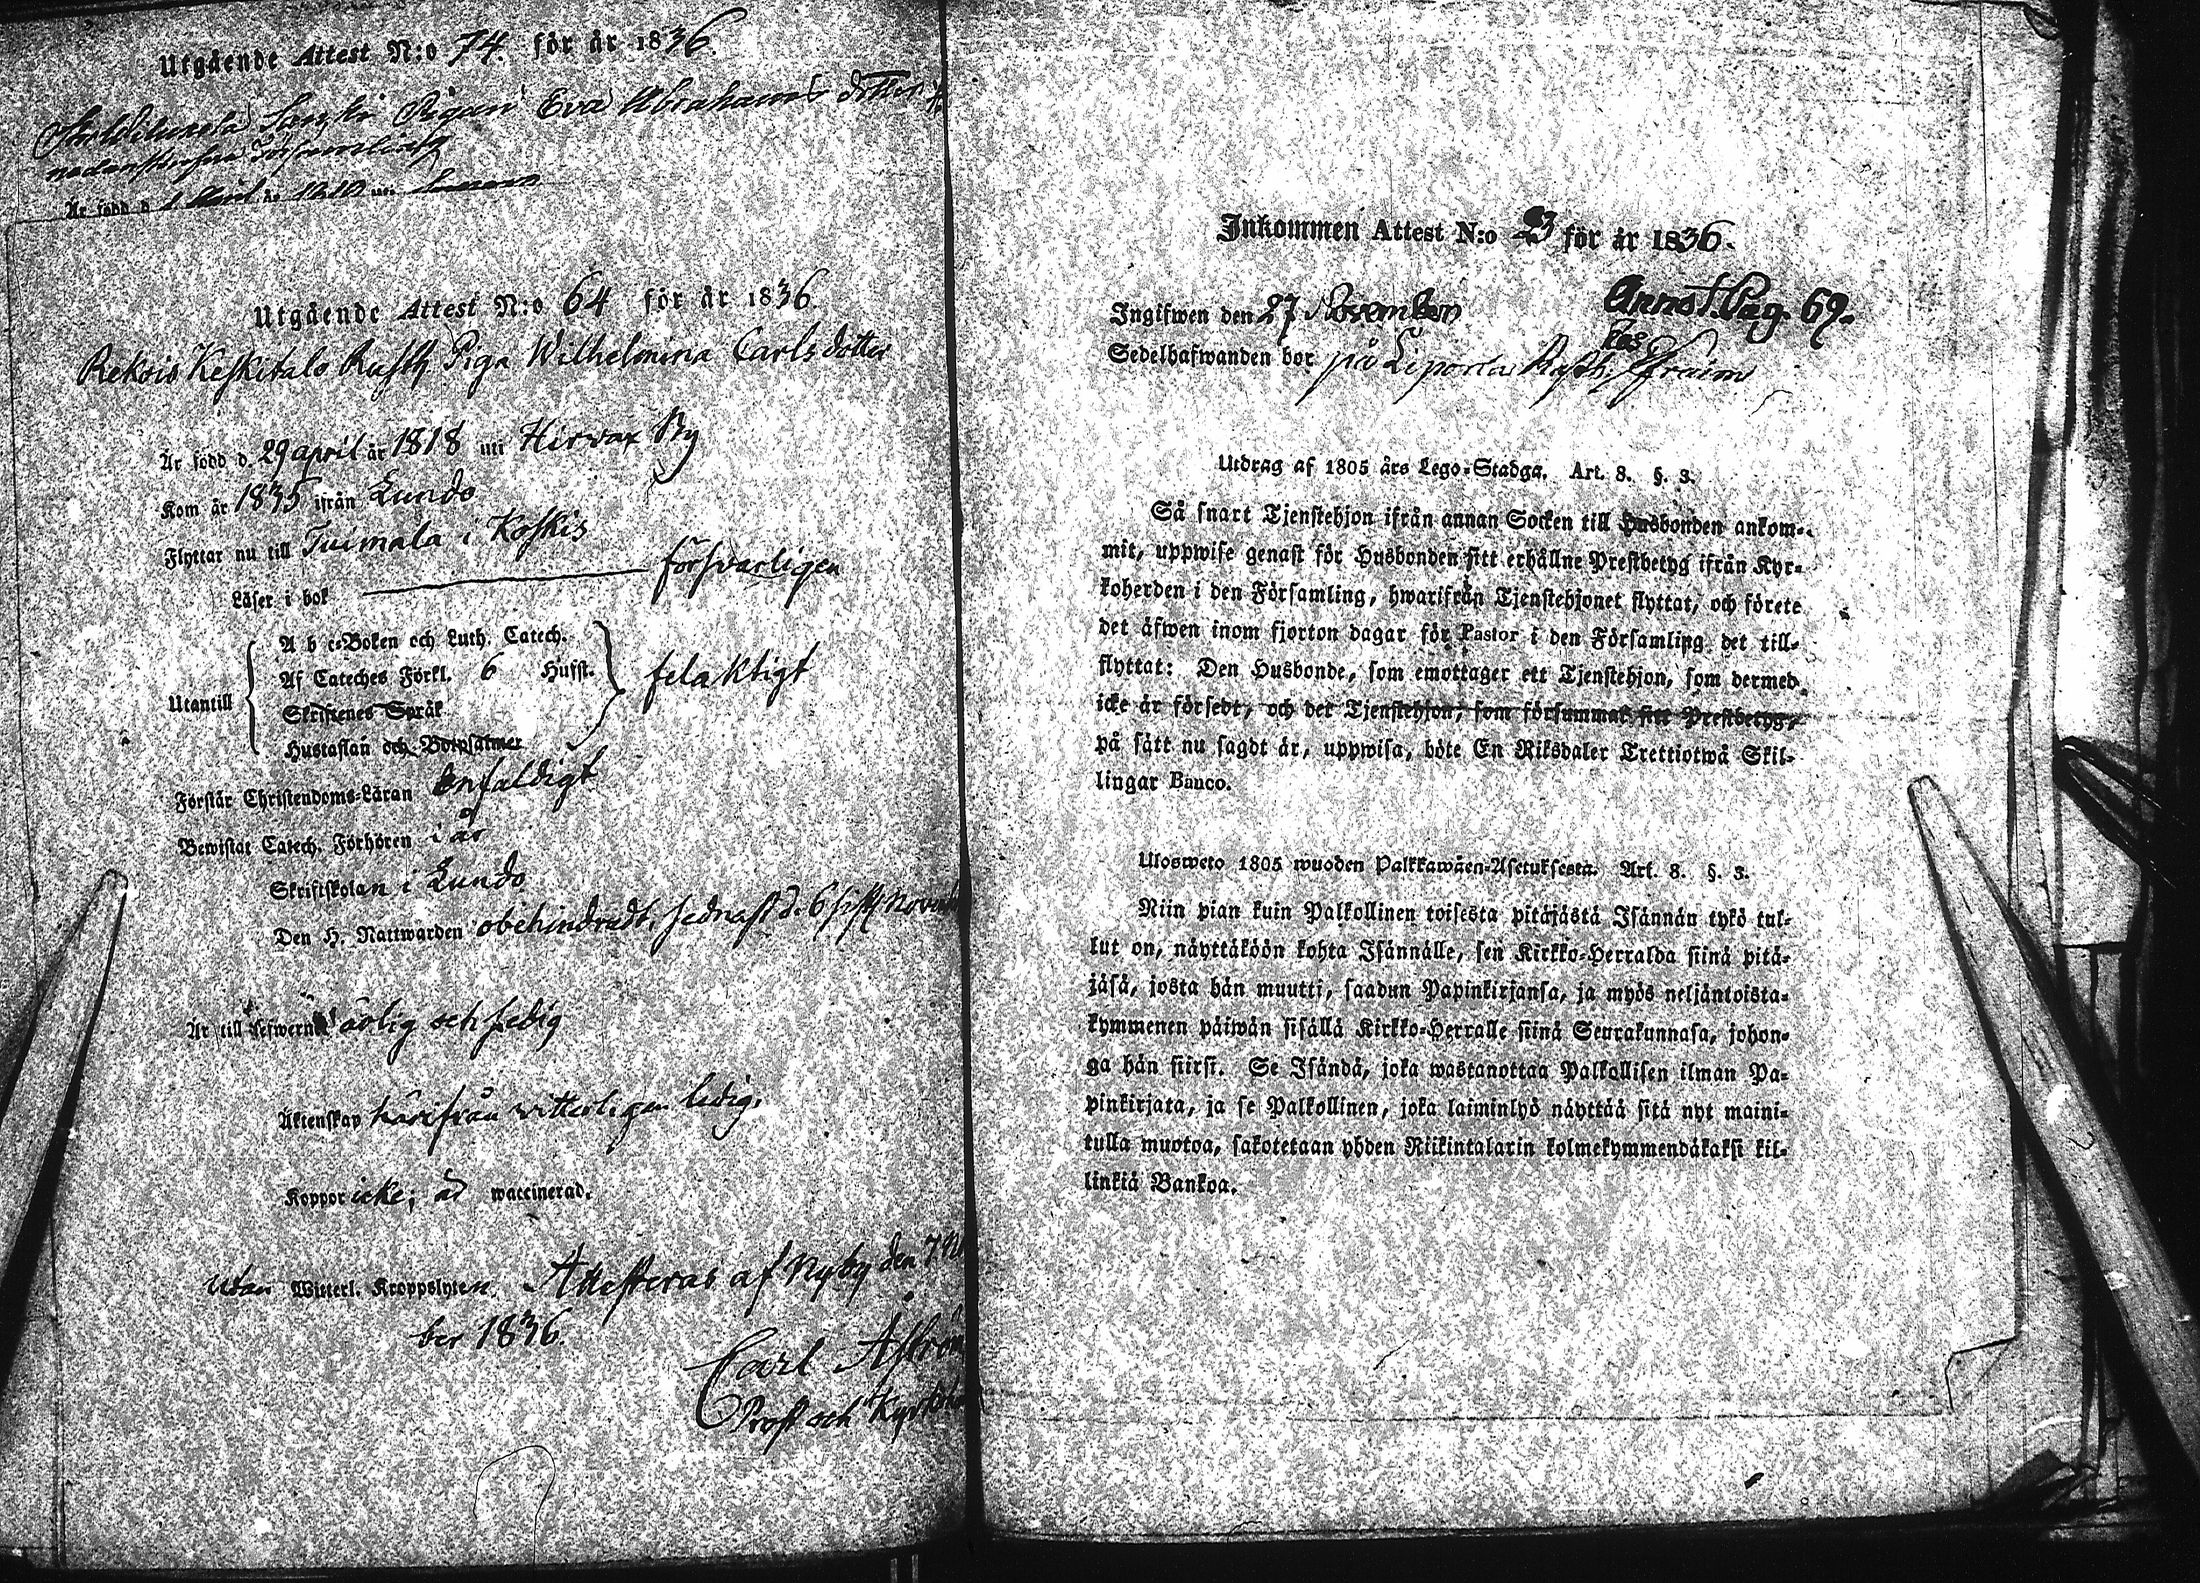 Utgående Attest N:o 74. för år 1836.
Pigan Eva Abrahams dotter
Är född d. 1 April år 1810 uti
Utgående Attest N:o 64 för år 1836.
Rekois Keskitalo Rusth. Piga Wilhelmina Carlsdotter
Är född d. 29 april år 1818 uti Hirvax By
Kom år 1835 ifrån Lundo
Flyttar nu till Tuimala i Koskis
Läser i bok försvarligen
A b c-Boken och Luth. Catech.
Af Cateches Förkl. 6 Hufst.
Utantill felaktigt
Skriftenes Språk
Hustaflan och Botpsalmer
Förstår Christendoms-Läran enfaldigt
Bewistat Catech. Förhören i år
Skriftskolan i Lundo
Den H. Nattwarden obehindradt, sednast d. 6 sistl. Novemb
Är till Lefwerne ärlig och sedig
Äktenskap härifrån witterligen ledig.
Koppor icke; är waccinerad.
utan Witterl. Kroppslyten. Attesteras af Nyby den 7 No
ber 1836.
Carl Åström
Prost och Kyrkoh
Inkommen Attest N:o 23 för år 1836.
Ingifwen den 27 November Annot. Pag. 69.
Sedelhafwanden bor på Liporla Rusth. Efraim
Utdrag af 1805 års Lego-Stadga. Art. 8. §. 3.
Så snart Tjenstehjon ifrån annan Socken till Husbonden ankom-
mit, uppwise genast för Husbonden sitt erhållne Prestbetyg ifrån Kyr-
koherden i den Församling, hwarifrån Tjenstehjonet flyttat, och förete
det äfwen inom fjorton dagar för Pastor i den Församling det till-
flyttat: Den Husbonde, som emottager ett Tjenstehjon, som dermed
icke är försedt, och det Tjenstehjon, som försummat sitt Prestbetyg,
på sätt nu sagdt är, uppwisa, böte En Riksdaler Trettiotwå Skil-
lingar Banco.
Uloswеto 1805 wuoden Palkkawäen-Asetuksesta. Art. 8. §. 3.
Niin pian kuin Palkollinen toisesta pitäjästä Isännän tykö tul-
lut on, näyttäköön kohta Isännälle, sen Kirkko-Herralda siinä pitä-
jäsä, josta hän muutti, saadun Papinkirjansa, ja myös neljäntoista-
kymmenen päiwän sisällä Kirkko-Herralle siinä Seurakunnasa, johon-
ga hän siirsi. Se Isändä, joka wastanottaa Palkollisen ilman Pa-
pinkirjata, ja se Palkollinen, joka laiminlyö näyttää sitä nyt maini-
tulla muotoa, sakotetaan yhden Riikintalarin kolmekymmendäkaksi kil-
linkiä Bankoa.